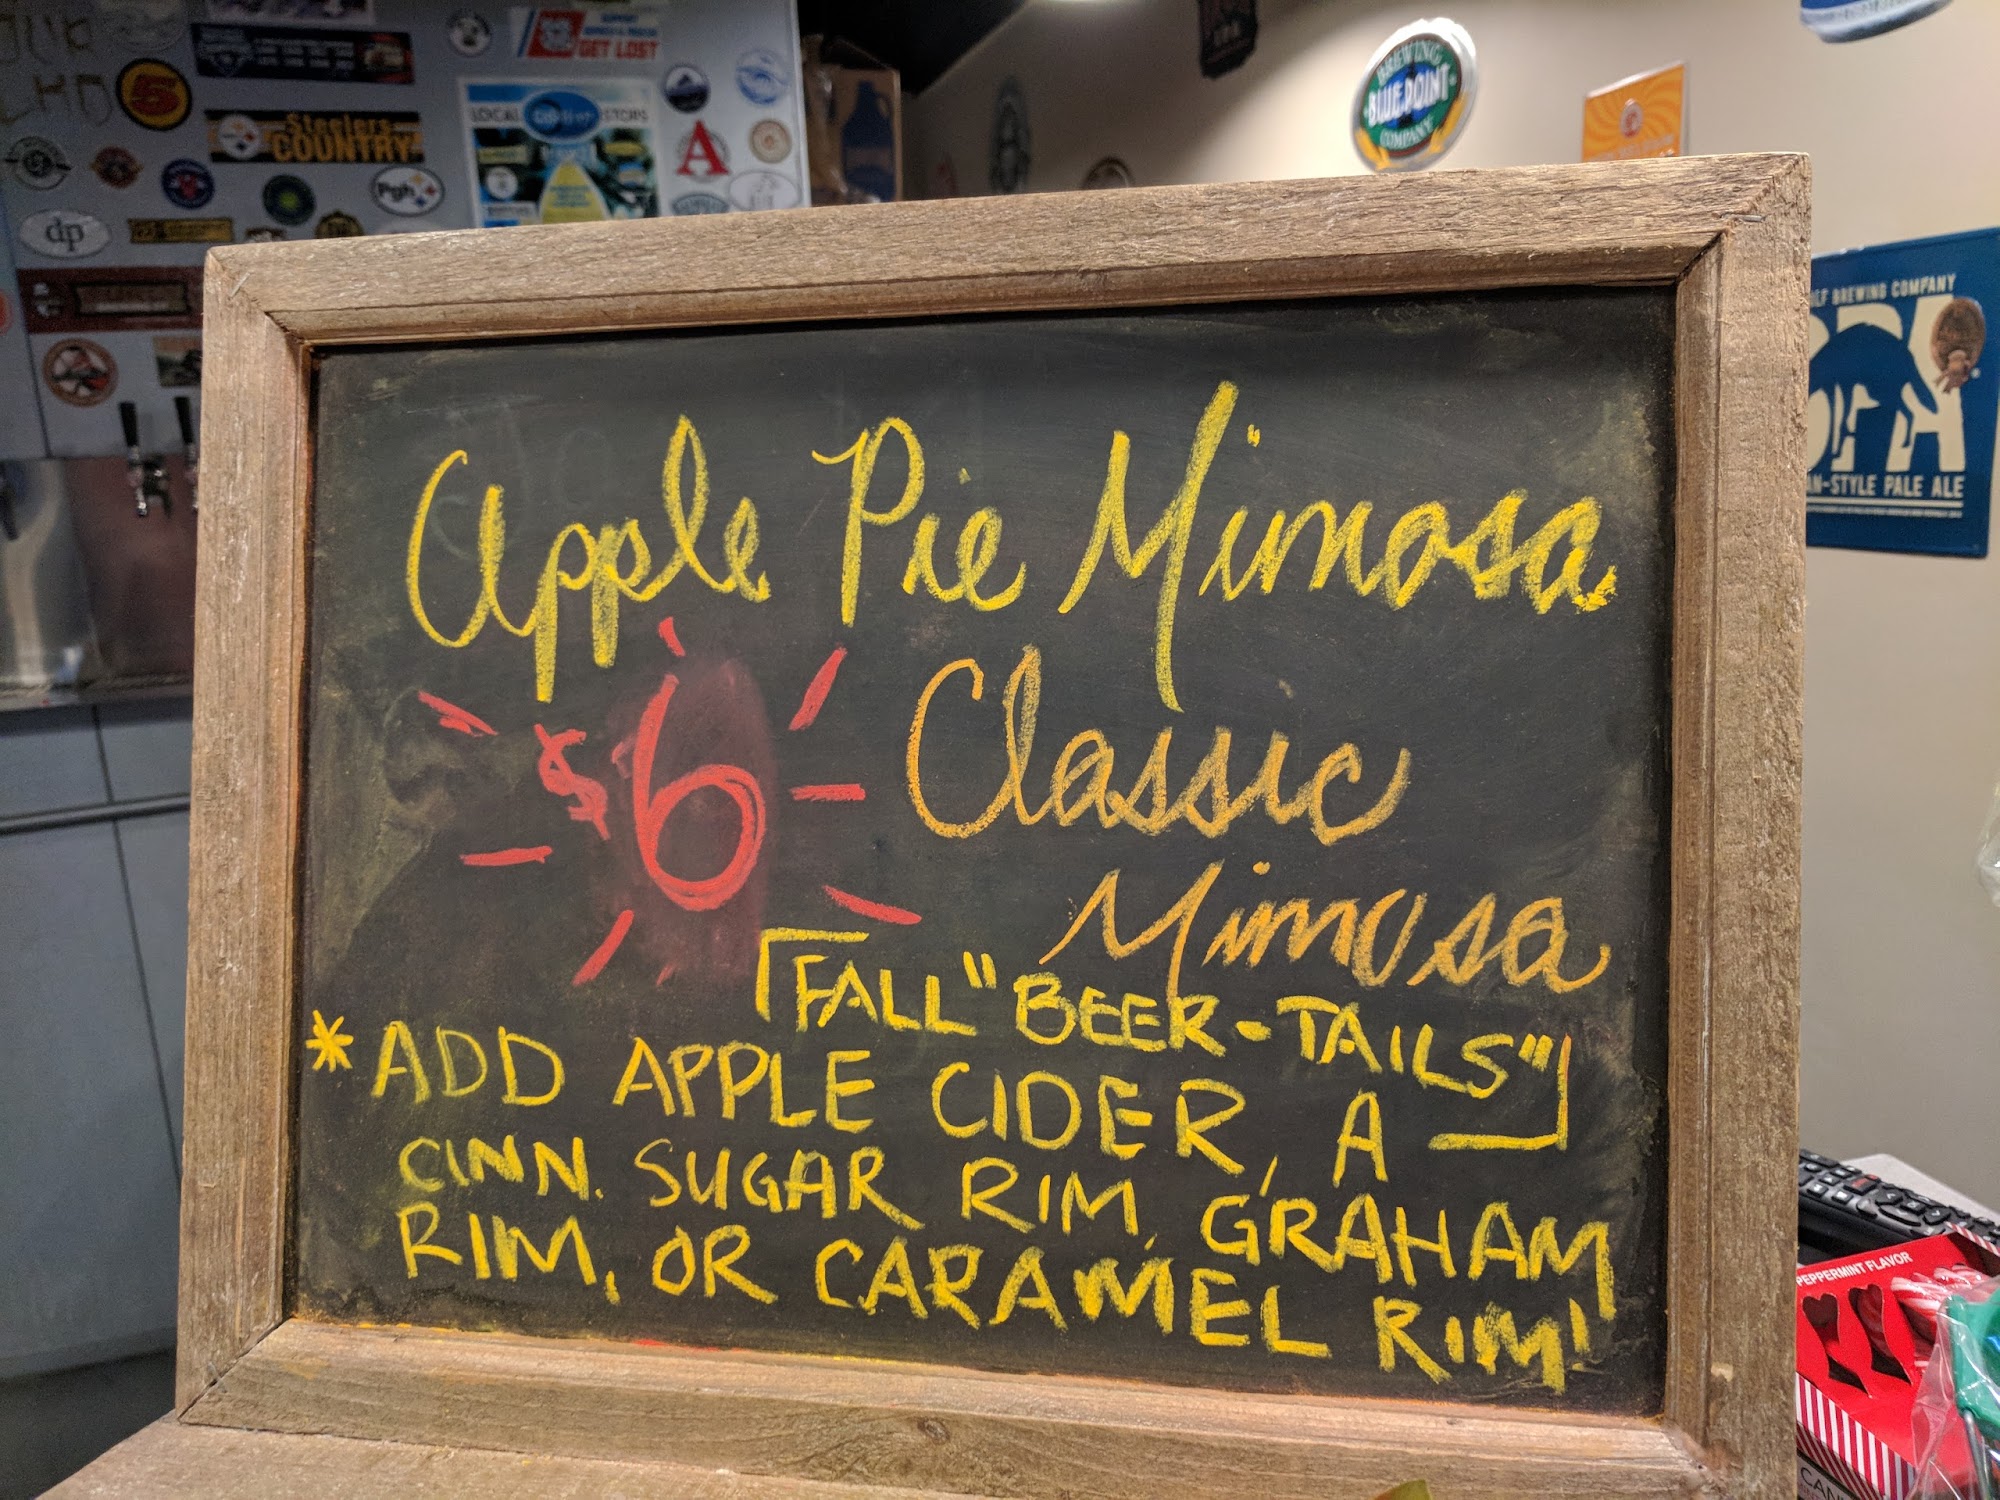 GET LOST
5
Steelers
COUNTRY
LOCAL
A
Pgh
dp
BREWING
BLUE POINT
COMPANY
BREWING COMPANY
-STYLE PALE ALE
Apple Pie Mimosa
$6
Classic
Mimosa
FALL "BEER-TAILS"
* ADD APPLE CIDER, A
CINN. SUGAR RIM, GRAHAM
RIM, OR CARAMEL RIM!
PEPPERMINT FLAVOR